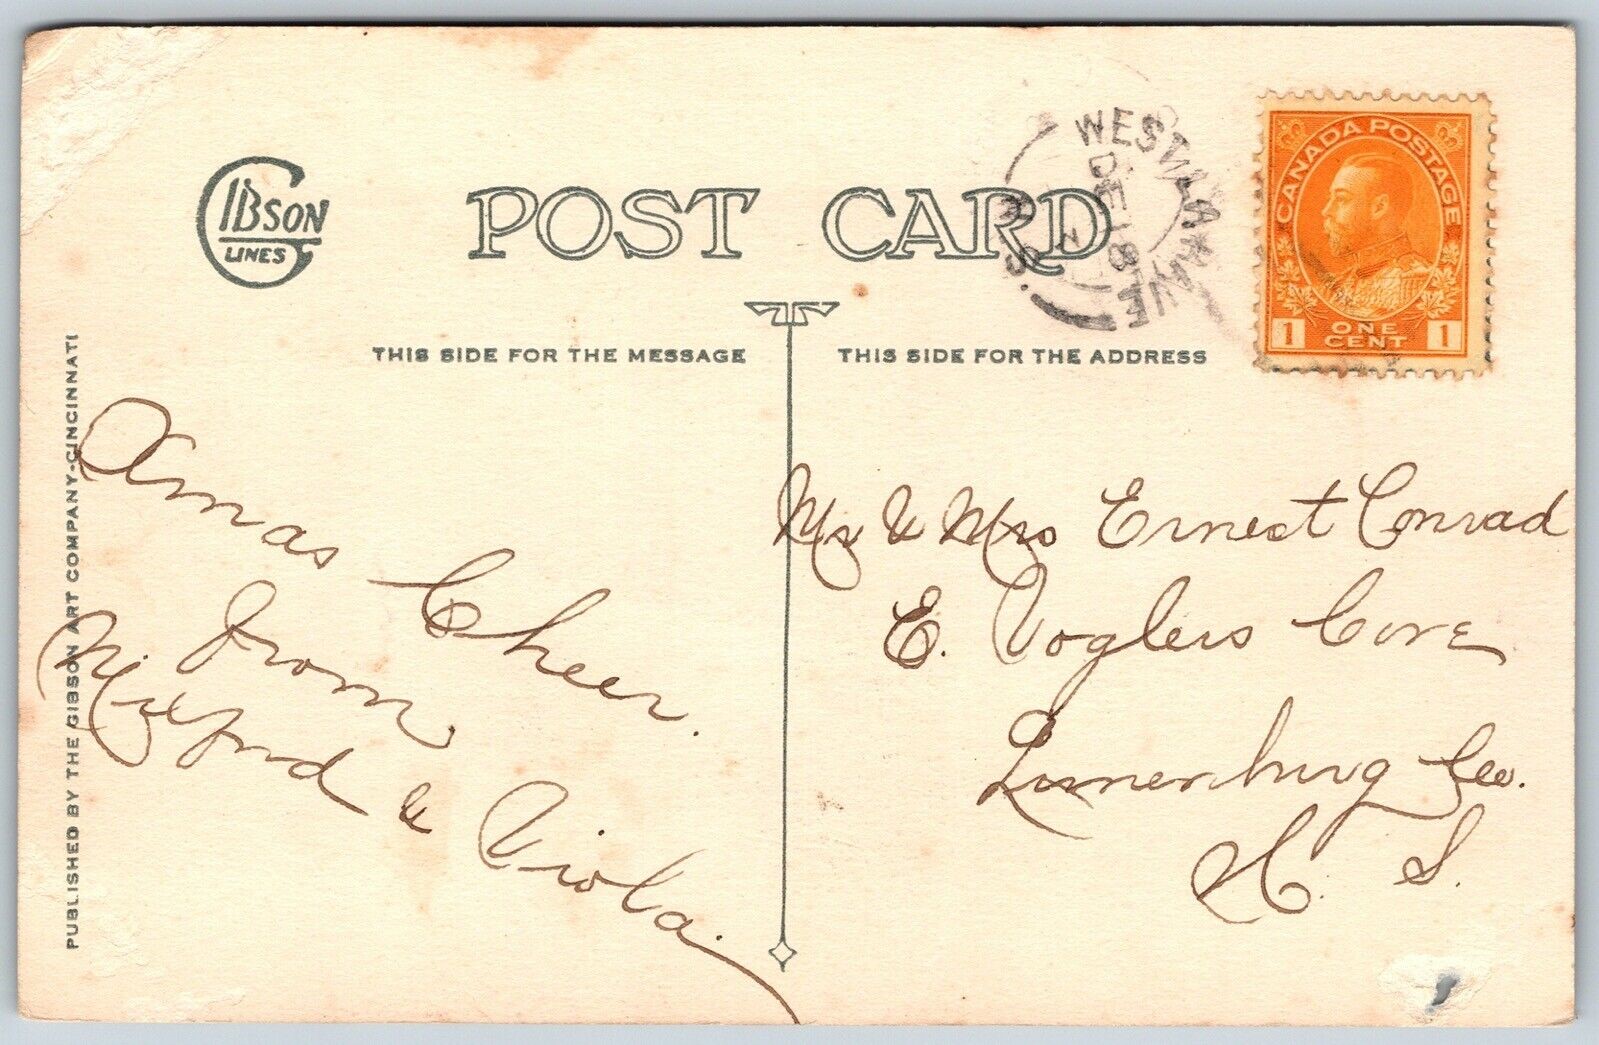 GIBSON
LINES
POST CARD
THIS SIDE FOR THE MESSAGE
THIS SIDE FOR THE ADDRESS
PUBLISHED BY THE GIBSON ART COMPANY-CINCINNATI
CANADA POSTAGE
1 ONE CENT 1
DE 18
N.S.
Xmas Cheer.
from
Milford & Viola.
Mr & Mrs Ernest Conrad
E. Voglers Cove
Lunenburg Co.
N. S.